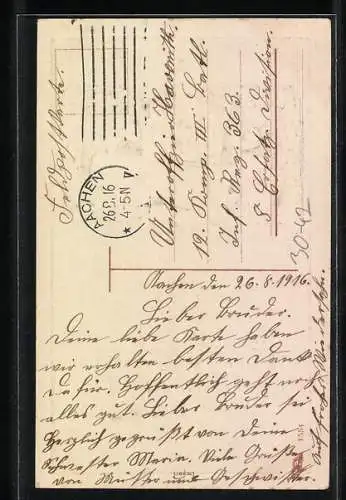 Feldpostkarte.
AACHEN
26.8.16
4-5 N
Unteroffizier
12. Komp. III Batl.
Inf. Reg. 363.
Ersatz Division.
30-42
Aachen den 26.8.1916.
Lieber Bruder.
Deine liebe Karte haben
wir erhalten besten Dank
dafür. Hoffentlich geht noch
alles gut. Lieber Bruder sei
Herzlich gegrüßt von deine
Schwester Maria. Viele Grüße
von Mutter und Geschwister.
auf frohes Wiedersehn.